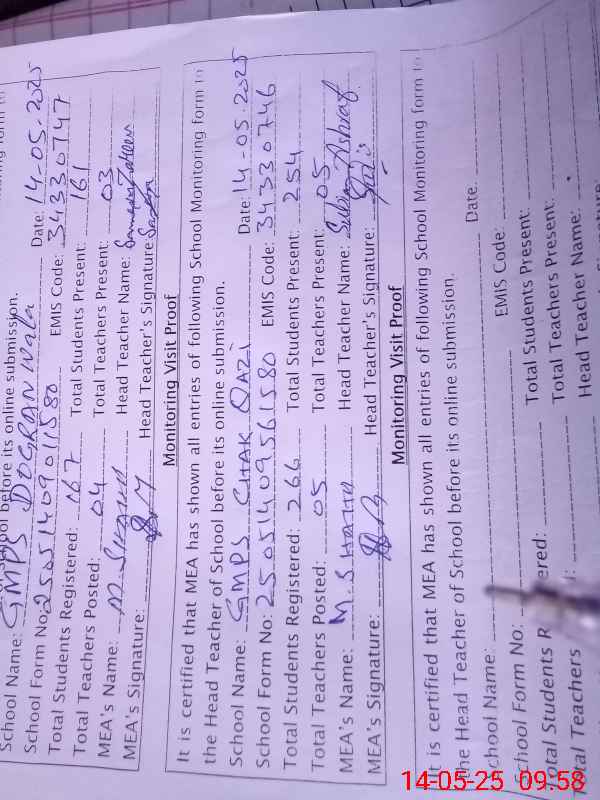 School before its online submission.
School Name: GMPS DOGRAN Wala Date: 14-05-2025
School Form No: 2505140901580 EMIS Code: 34330747
Total Students Registered: 167 Total Students Present: 161
Total Teachers Posted: 04 Total Teachers Present: 03
MEA's Name: Head Teacher Name:
MEA's Signature: Head Teacher's Signature:
Monitoring Visit Proof
It is certified that MEA has shown all entries of following School Monitoring form to
the Head Teacher of School before its online submission.
School Name: GMPS CHAK QAZI Date: 14-05-2025
School Form No: 25051409561580 EMIS Code: 34330746
Total Students Registered: 266 Total Students Present: 254
Total Teachers Posted: 05 Total Teachers Present: 05
MEA's Name: Head Teacher Name: Ashraf
MEA's Signature: Head Teacher's Signature:
Monitoring Visit Proof
It is certified that MEA has shown all entries of following School Monitoring form to
the Head Teacher of School before its online submission.
School Name: Date.
School Form No: EMIS Code:
Total Students Total Students Present:
Total Teachers Total Teachers Present:
Head Teacher Name:
14-05-25 09:58